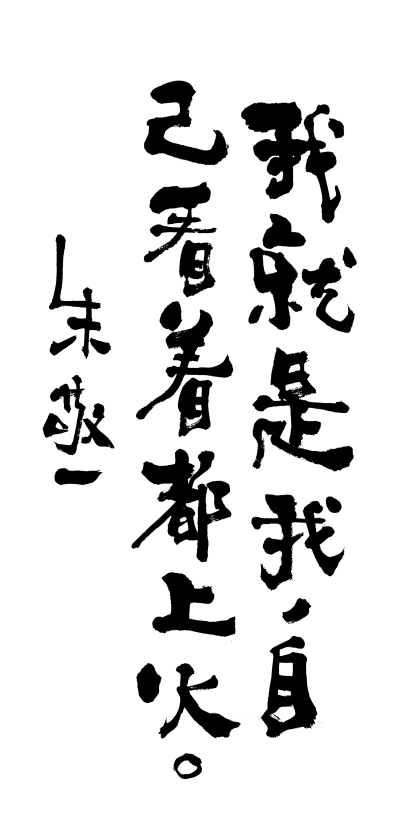 我就是我,自
己看着都上火。
朱敬一